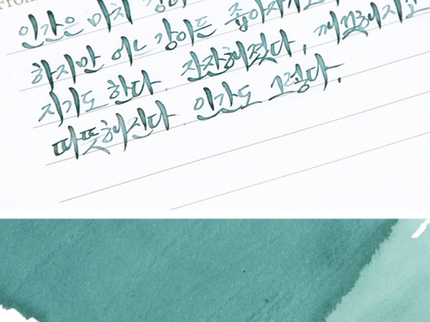 From.
인간은 마치 강
하지만 어느 강이든 좁아지기도
지기도 한다. 잔잔해졌다, 깨끗해지기
따뜻해진다. 인간도 그렇다.